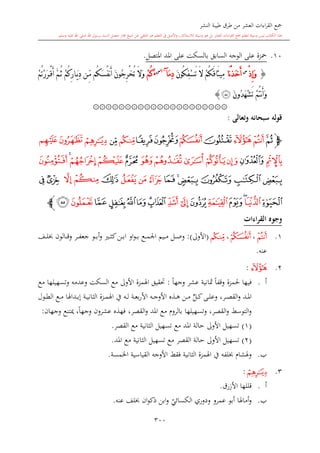 جمع القراءات العشر من طرق طيبة النشر
١٠. حمزة على الوجه السابق بالسكت على المد المتصل.
﴿ وَإِذْ أَخَذْنَا مِيثَٰقَكُمْ لَا تَسْفِكُونَ دِمَآءَكُمْ وَلَا تُخْرِجُونَ أَنفُسَكُم مِّن دِيَٰرِكُمْ ثُمَّ أَقْرَرْتُمْ
وَأَنتُمْ تَشْهَدُونَ ﴾
قوله سبحانه وتعالى :
﴿ ثُمَّ أَنتُمْ هَٰٓؤُلَآءِ تَقْتُلُونَ أَنفُسَكُمْ وَتُخْرِجُونَ فَرِيقًا مِّنكُم مِّن دِيَٰرِهِمْ تَظَٰهَرُونَ عَلَيْهِم
بِٱلْإِثْمِ وَٱلْعُدْوَٰنِ وَإِن يَأْتُوكُمْ أُسَٰرَىٰ تُفَٰدُوهُمْ وَهُوَ مُحَرَّمٌ عَلَيْكُمْ إِخْرَاجُهُمْ أَفَتُؤْمِنُونَ
بِبَعْضِ ٱلْكِتَٰبِ وَتَكْفُرُونَ بِبَعْضٍ فَمَا جَزَآءُ مَن يَفْعَلُ ذَٰلِكَ مِنكُمْ إِلَّا خِزْىٌ فِى
ٱلْحَيَوٰةِ ٱلدُّنْيَا وَيَوْمَ ٱلْقِيَٰمَةِ يُرَدُّونَ إِلَىٰٓ أَشَدِّ ٱلْعَذَابِ وَمَا ٱللَّهُ بِغَٰفِلٍ عَمَّا تَعْمَلُونَ ﴿٨٥﴾ ﴾
وجوه القراءات
١. أَنتُمْ ، أَنفُسَكُمْ ، مِّنكُم (الأولى): وصل ميم الجمع بواو ابن كثير وأبو جعفر وقالون بخلف
عنه.
٢. هَٰٓؤُلَآءِ :
أ . فيها لحمزة وقفاً ثمانية عشر وجهاً : تحقيق الهمزة الأولى مع السكت وعدمه وتسهيلها مع
المد والقصر، وعلى كلٍّ من هذه الأوجه الأربعة له في الهمزة الثانية إبدالها مع الطول
والتوسط والقصر، وتسهيلها بالروم مع المد والقصر، فهذه عشرون وجهاً، يمتنع وجهان:
(١) تسهيل الأولى حالة المد مع تسهيل الثانية مع القصر.
(٢) تسهيل الأولى حالة القصر مع تسهيل الثانية مع المد.
ب. ولهشام بخلفه في الهمزة الثانية فقط الأوجه القياسية الخمسة.
٣. دِيَٰرِهِمْ :
أ . قللها الأزرق.
ب. وأمالها أبو عمرو ودوري الكسائي وابن ذكوان بخلف عنه.
٣٠٠